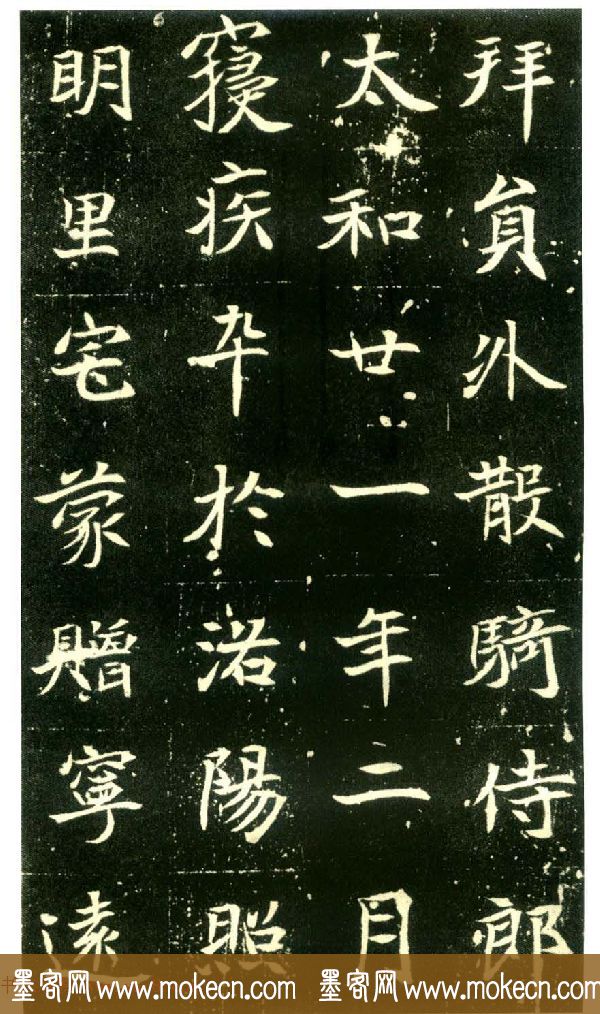 拜員外散騎侍郎
太和廿一年二月
寑疾卒於洛陽照
明里宅蒙贈寧遠
墨客网 www.mokecn.com 墨客网 www.mokecn.com